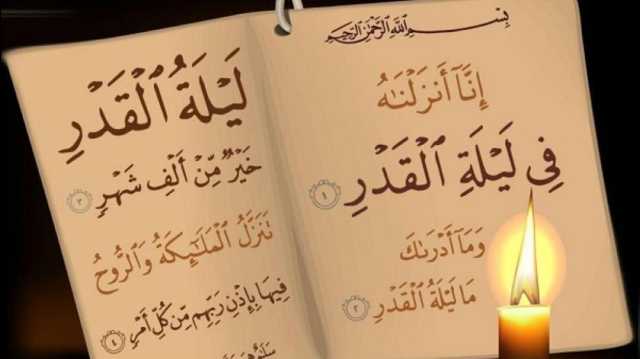 بِسْمِ اللَّهِ الرَّحْمَٰنِ الرَّحِيمِ
إِنَّآ أَنزَلْنَٰهُ
فِى لَيْلَةِ ٱلْقَدْرِ ١
وَمَآ أَدْرَىٰكَ
مَا لَيْلَةُ ٱلْقَدْرِ ٢
لَيْلَةُ ٱلْقَدْرِ
خَيْرٌ مِّنْ أَلْفِ شَهْرٍ ٣
تَنَزَّلُ ٱلْمَلَٰٓئِكَةُ وَٱلرُّوحُ
فِيهَا بِإِذْنِ رَبِّهِم مِّن كُلِّ أَمْرٍ ٤
سَلَٰمٌ هِىَ